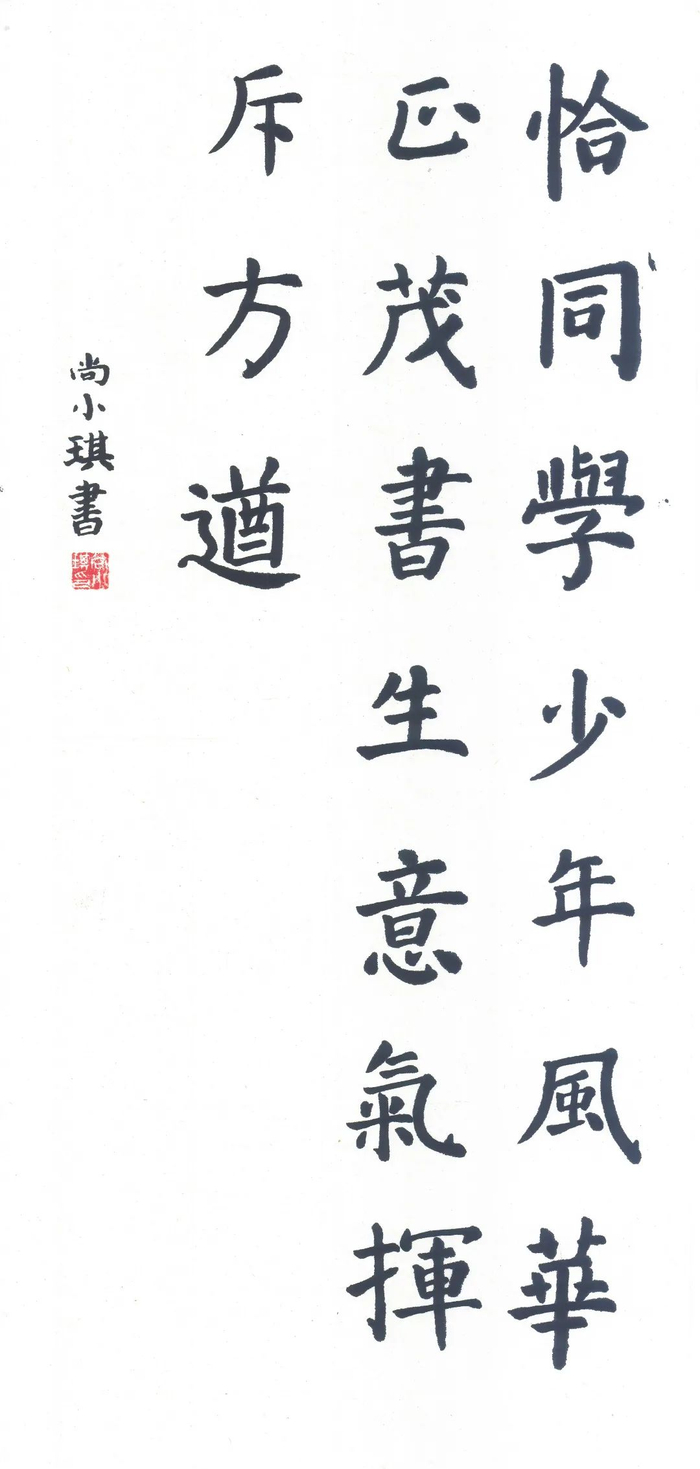 恰同學少年風華
正茂書生意氣揮
斥方遒
尚小琪書